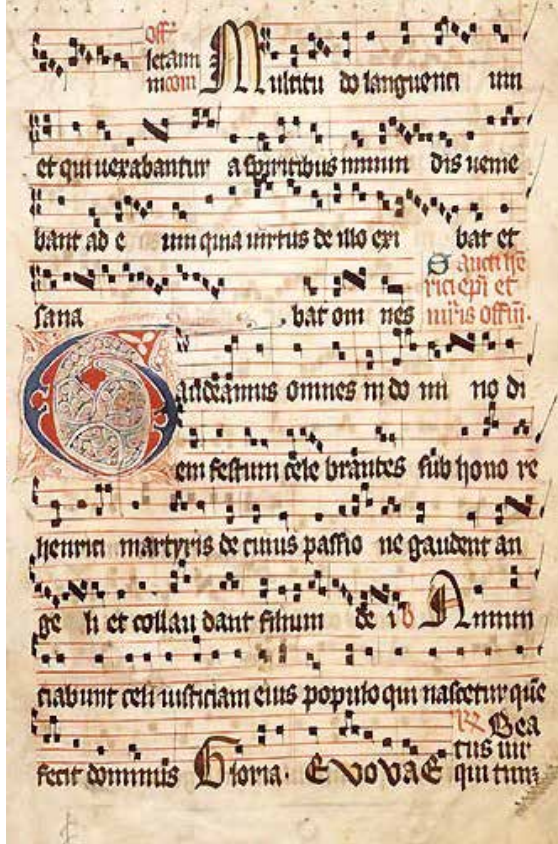 offm
letam
incom Multitu do languenti um
et qui uexabantur a spiritibus inmun dis uenie
bant ad e um quia uirtus de illo exi bat et
sana bat om nes
Sancti hen
rici epi et
mris offm.
Gaudeamus omnes in do mi no di
em festum cele brantes sub hono re
henrici martyris de cuius passio ne gaudent an
ge li et collau dant filium de i Annun
ciabunt celi iusticiam eius populo qui nascetur que
fecit dominus Gloria. EVOVAE
Bea
tus uir
qui tim